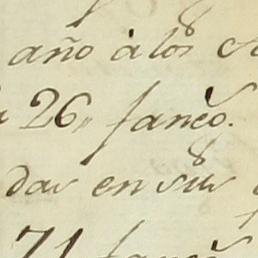 año à los
26„ faneˢ.
das en sus
71 faneˢ